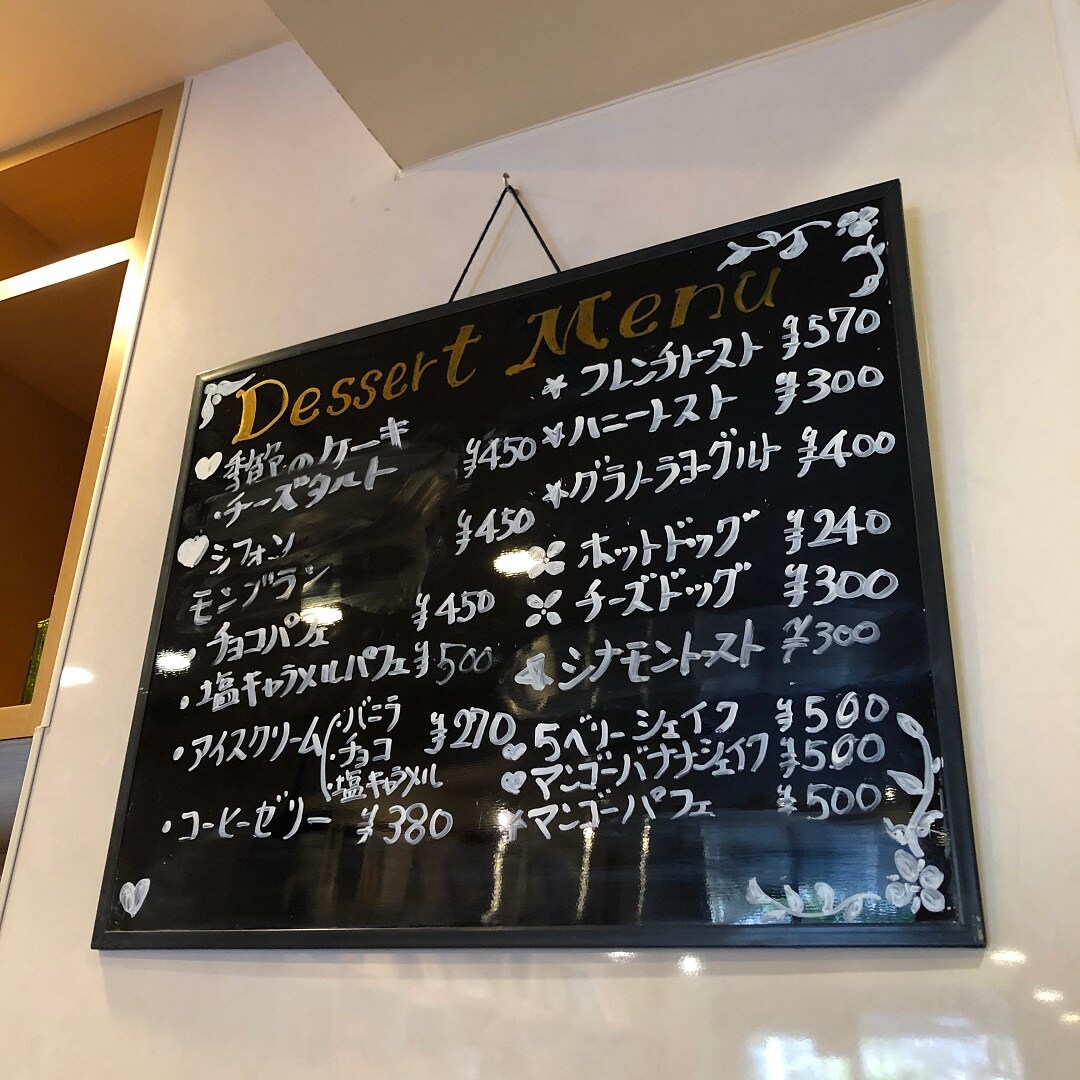 Dessert Menu
季節のケーキ
・チーズタルト ¥450
シフォン ¥450
モンブラン
・チョコパフェ ¥450
・塩キャラメルパフェ ¥500
・アイスクリーム ・バニラ ¥270
・チョコ
・塩キャラメル
・コーヒーゼリー ¥380
フレンチトースト ¥570
ハニートスト ¥300
グラノーラヨーグルト ¥400
ホットドッグ ¥240
チーズドッグ ¥300
シナモントースト ¥300
5ベリーシェイク ¥500
マンゴーバナナシェイク ¥500
マンゴーパフェ ¥500